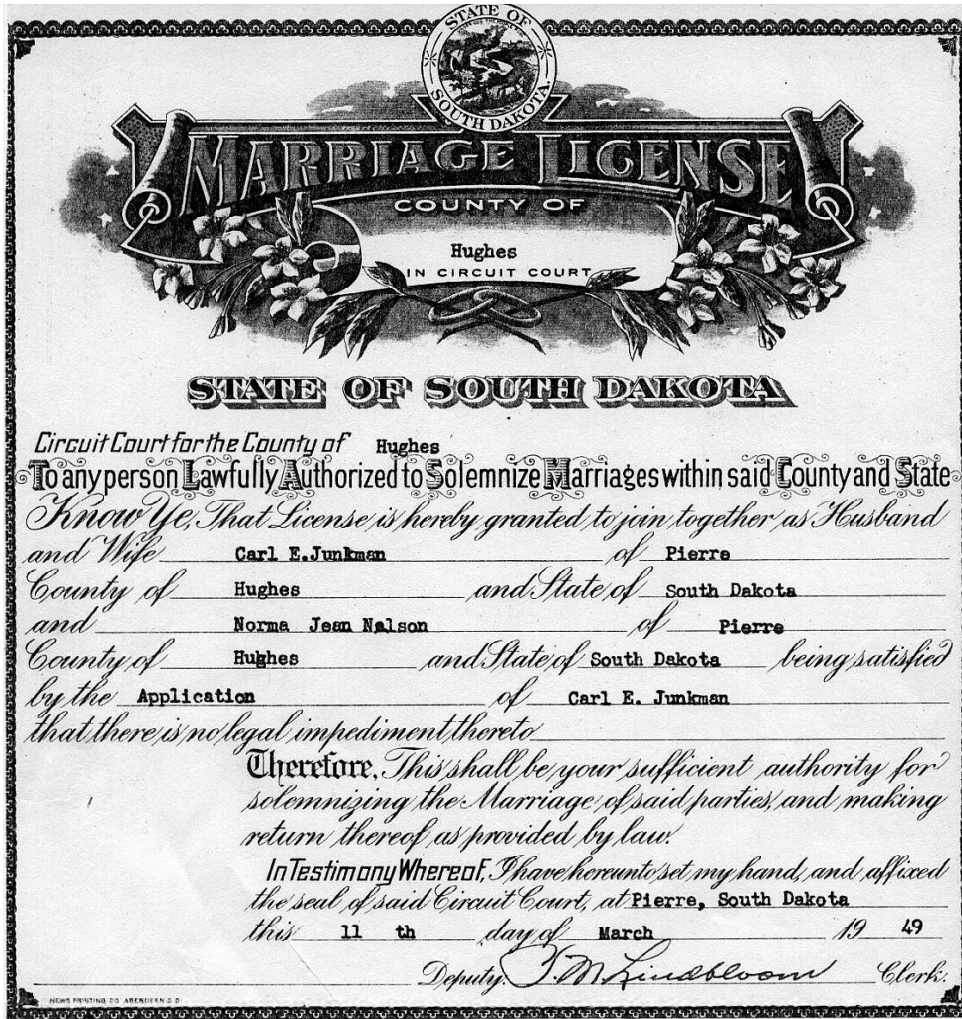 STATE OF
SOUTH DAKOTA.
MARRIAGE LICENSE
COUNTY OF
Hughes
IN CIRCUIT COURT
STATE OF SOUTH DAKOTA
Circuit Court for the County of Hughes
To any person Lawfully Authorized to Solemnize Marriages within said County and State
Know Ye, That License is hereby granted to join together as Husband
and Wife Carl E.Junkman of Pierre
County of Hughes and State of South Dakota
and Norma Jean Nelson of Pierre
County of Hughes and State of South Dakota being satisfied
by the Application of Carl E. Junkman
that there is no legal impediment thereto
Therefore, This shall be your sufficient authority for
solemnizing the Marriage of said parties, and making
return thereof as provided by law.
In Testimony Whereof, I have hereunto set my hand, and affixed
the seal of said Circuit Court, at Pierre, South Dakota
this 11 th day of March 19 49
Deputy. T. M. Lindbloom Clerk.
NEWS PRINTING CO. ABERDEEN S.D.